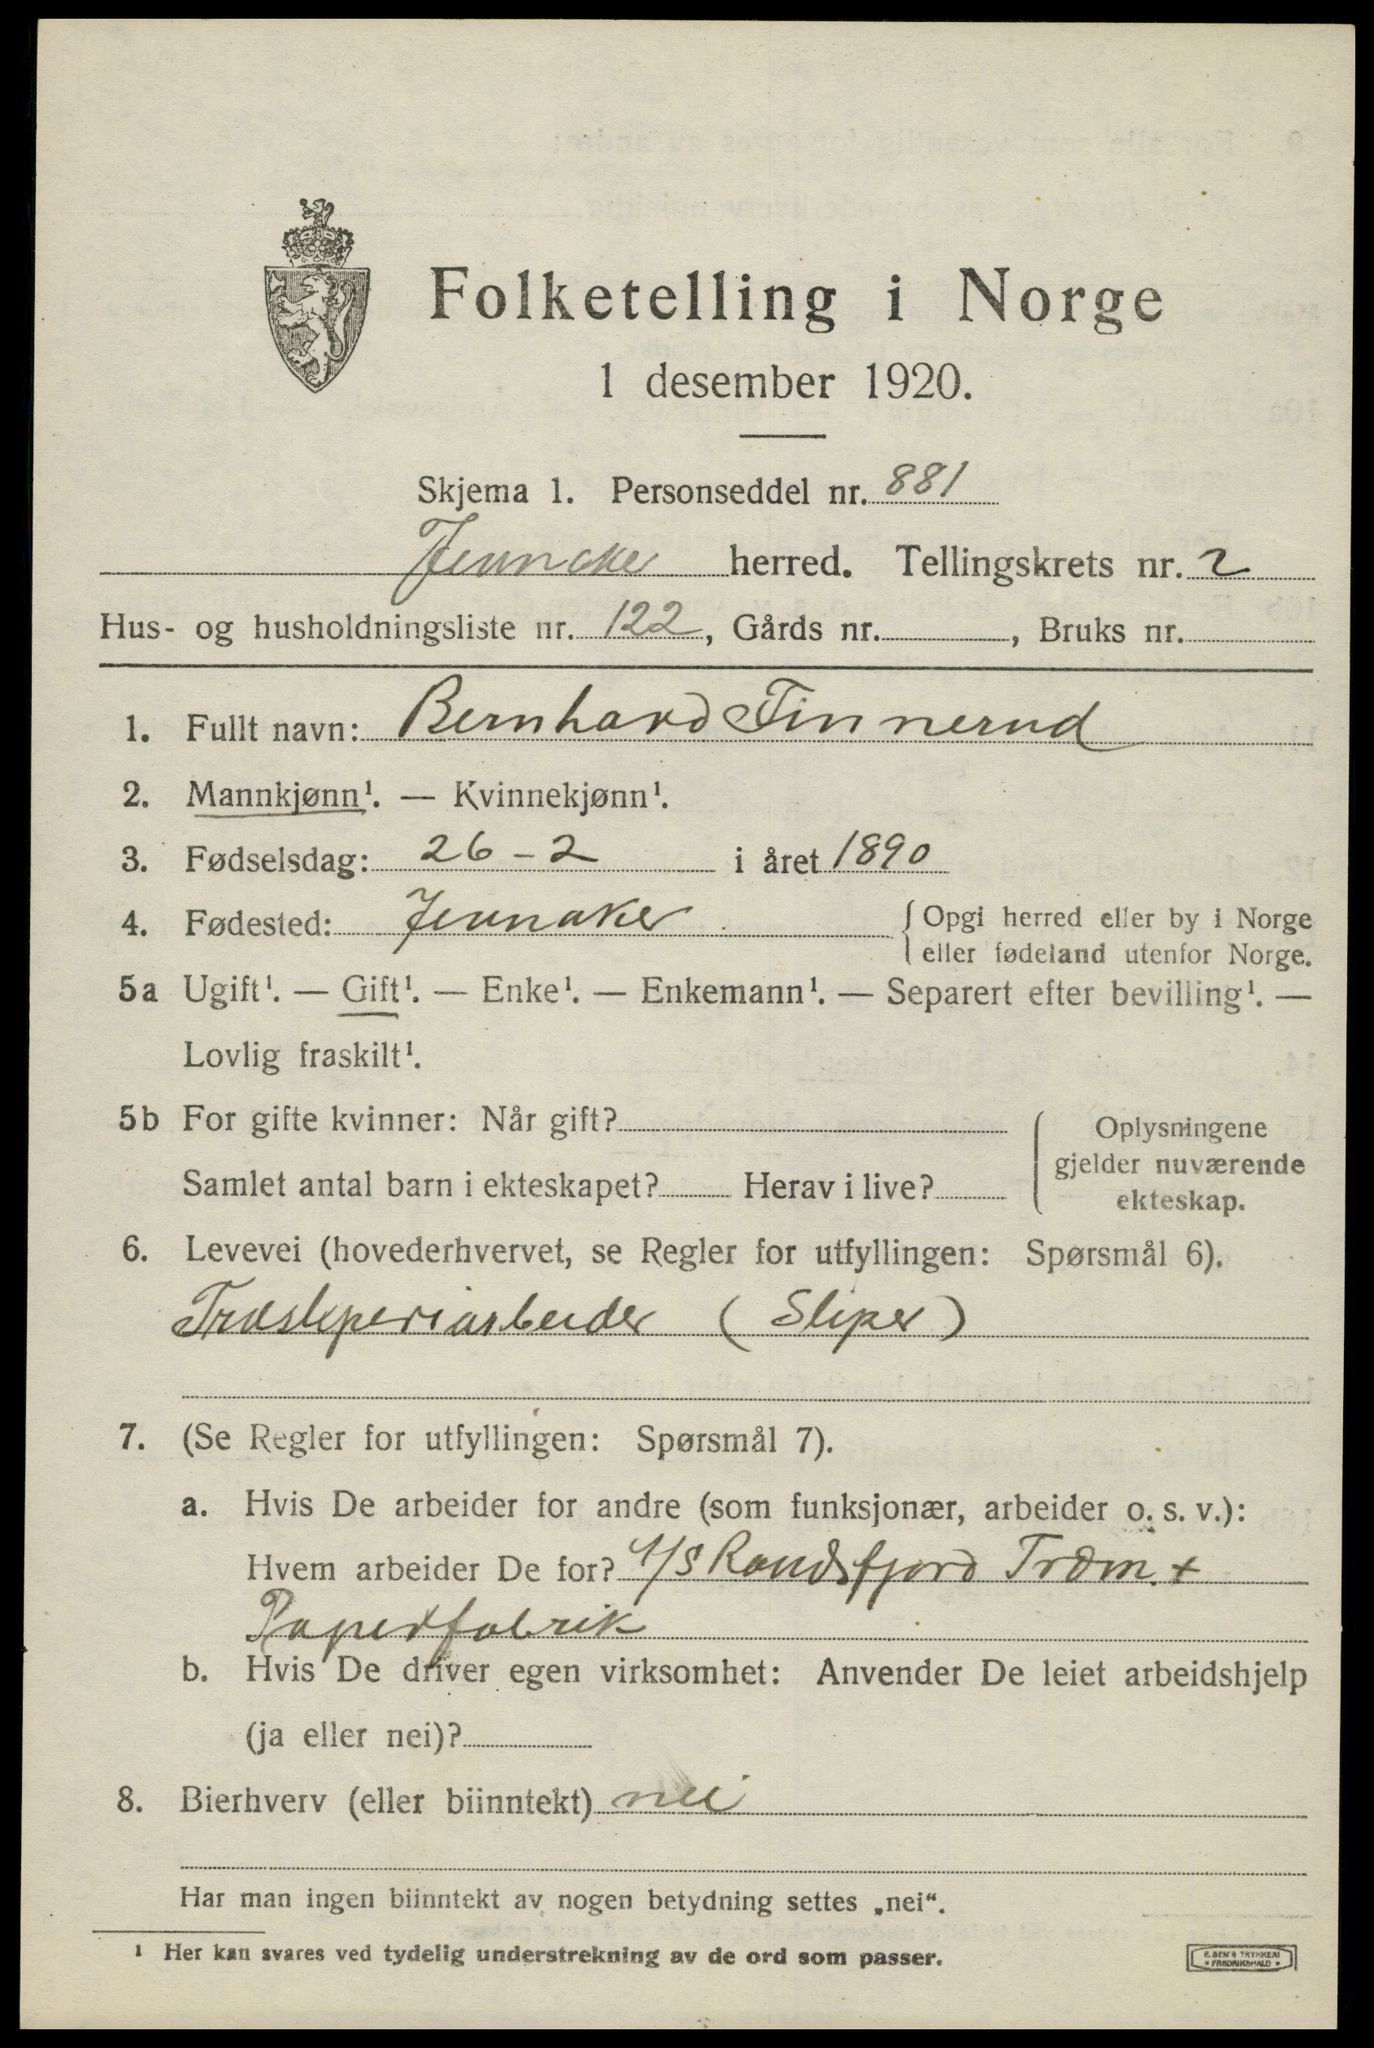 Folketelling i Norge
1 desember 1920.
Skjema 1. Personseddel nr. 881
Jevnaker herred. Tellingskrets nr. 2
Hus- og husholdningsliste nr. 122, Gårds nr. , Bruks nr.
1. Fullt navn: Bernhard Finnerud
2. Mannkjønn¹. — Kvinnekjønn¹.
3. Fødselsdag: 26-2 i året 1890
4. Fødested: Jevnaker { Opgi herred eller by i Norge
eller fødeland utenfor Norge.
5a Ugift¹. — Gift¹. — Enke¹. — Enkemann¹. — Separert efter bevilling¹. —
Lovlig fraskilt¹.
5b For gifte kvinner: Når gift? { Oplysningene
gjelder nuværende
Samlet antal barn i ekteskapet? Herav i live?
ekteskap.
6. Levevei (hovederhvervet, se Regler for utfyllingen: Spørsmål 6).
Træsliperiarbeider (Sliper)
7. (Se Regler for utfyllingen: Spørsmål 7).
a. Hvis De arbeider for andre (som funksjonær, arbeider o. s. v.):
Hvem arbeider De for? A/S Randsfjord Træm. +
Papirfabrik
b. Hvis De driver egen virksomhet: Anvender De leiet arbeidshjelp
(ja eller nei)?
8. Bierhverv (eller biinntekt) nei
Har man ingen biinntekt av nogen betydning settes „nei“.
¹ Her kan svares ved tydelig understrekning av de ord som passer.